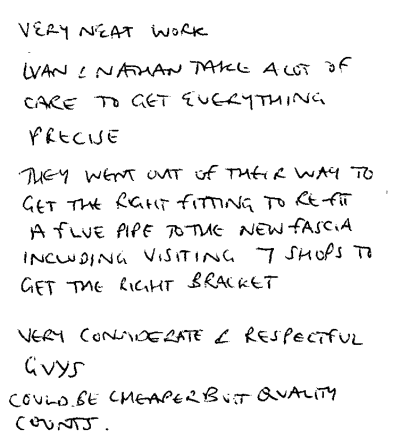 VERY NEAT WORK
IVAN & NATHAN TAKE A LOT OF
CARE TO GET EVERYTHING
PRECISE
THEY WENT OUT OF THEIR WAY TO
GET THE RIGHT FITTING TO RE-FIT
A FLUE PIPE TO THE NEW FASCIA
INCLUDING VISITING 7 SHOPS TO
GET THE RIGHT BRACKET
VERY CONSIDERATE & RESPECTFUL
GUYS
COULD BE CHEAPER BUT QUALITY
COUNTS.